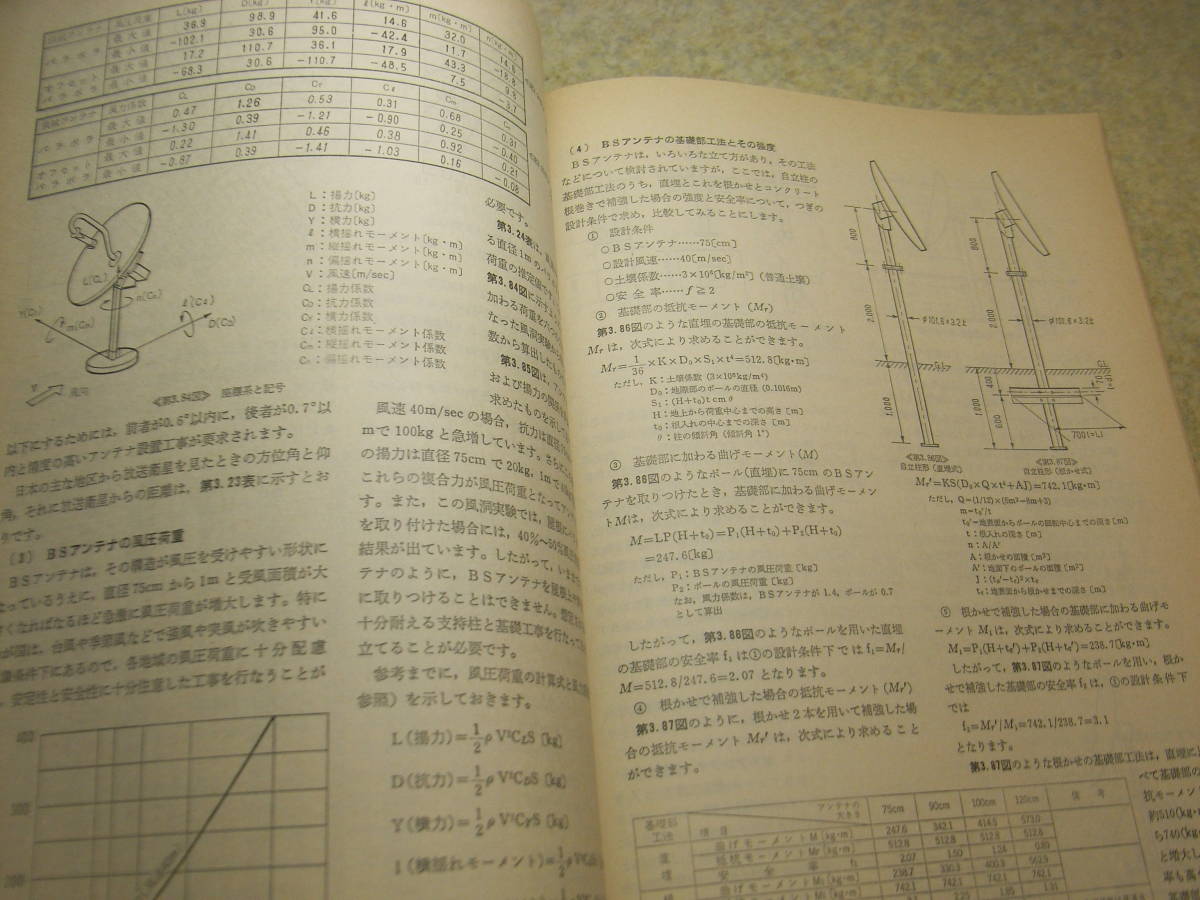 L(kg) D(kg) Y(kg) ℓ(kg・m) m(kg・m) n(kg・m)
最大値 36.9 98.9 41.6 14.6 32.0
パラボラ 最小値 -102.1 30.6 95.0 -42.4 11.7
オフセット 最大値 17.2 110.7 36.1 17.9 43.3
パラボラ 最小値 -68.3 30.6 -110.7 -48.5 7.5
風力係数 CL CD CY Cℓ Cm Cn
パラボラ 最大値 0.47 1.26 0.53 0.31 0.68 0.31
最小値 -1.30 0.39 -1.21 -0.90 0.25 -0.40
オフセット 最大値 0.22 1.41 0.46 0.38 0.92 0.21
パラボラ 最小値 -0.87 0.39 -1.41 -1.03 0.16 -0.08
L:揚力[kg]
D:抗力[kg]
Y:横力[kg]
ℓ:横揺れモーメント[kg・m]
m:縦揺れモーメント[kg・m]
n:偏揺れモーメント[kg・m]
V:風速[m/sec]
CL:揚力係数
CD:抗力係数
CY:横力係数
Cℓ:横揺れモーメント係数
Cm:縦揺れモーメント係数
Cn:偏揺れモーメント係数
L(CL)
n(Cn)
Y(CY)
m(Cm)
ℓ(Cℓ)
D(CD)
V
風向
≪第3.84図≫ 座標系と記号
以下にするためには,前者が0.6°以内に,後者が0.7°以
内と精度の高いアンテナ設置工事が要求されます。
日本の主な地区から放送衛星を見たときの方位角と仰
角,それに放送衛星からの距離は,第3.23表に示すとお
りです。
(3) BSアンテナの風圧荷重
BSアンテナは,その構造が風圧を受けやすい形状に
なっているうえに,直径75cmから1mと受風面積が大
きくなればなるほど急激に風圧荷重が増大します。特に
が国は,台風や季節風などで強風や突風が吹きやすい
条件下にあるので,各地域の風圧荷重に十分配慮
安定性と安全性に十分注意した工事を行なうことが
400
300
200
必要です。
第3.24表は,
る直径1mのパラ
荷重の推定値です。
第3.84図に示すよ
加わる荷重を
なった風洞実験から
数から算出したもの
第3.85図は,ア
および揚力の関係を
求めたものを示し
風速40m/secの場合,抗力は直径
mで100kgと急増しています。さらに
の揚力は直径75cmで20kg,1mで
これらの複合力が風圧荷重となってア
す。また,この風洞実験では,屋根に
を取り付けた場合には,40%~50%
結果が出ています。したがって,いま
テナのように,BSアンテナを屋根上や
に取りつけることはできません。
十分耐える支持柱と基礎工事を行なって
立てることが必要です。
参考までに,風圧荷重の計算式と風力
参照)を示しておきます。
L(揚力)=1/2 ρV²CLS [kg]
D(抗力)=1/2 ρV²CDS [kg]
Y(横力)=1/2 ρV²CYS [kg]
l(横揺れモーメント)=1/2 ρV²
(4) BSアンテナの基礎部工法とその強度
BSアンテナは,いろいろな立て方があり,その工法
などについて検討されていますが,ここでは,自立柱の
基礎部工法のうち,直埋とこれを根かせとコンクリート
根巻きで補強した場合の強度と安全率について,つぎの
設計条件で求め,比較してみることにします。
① 設計条件
○BSアンテナ……75[cm]
○設計風速……40[m/sec]
○土壌係数……3×10⁶[kg/m²](普通土壌)
○安 全 率……f≧2
② 基礎部の抵抗モーメント(Mr)
第3.86図のような直埋の基礎部の抵抗モーメント
Mrは,次式により求めることができます。
Mr=1/36×K×D₀×S₁×t⁴=512.8[kg・m]
ただし,K:土壌係数(3×10⁶kg/m⁴)
D₀:地際部のポールの直径(0.1016m)
S₁:(H+t₀)t cmθ
H:地上から荷重中心までの高さ[m]
t₀:根入れの中心までの深さ[m]
θ:柱の傾斜角(傾斜角1°)
③ 基礎部に加わる曲げモーメント(M)
第3.86図のようなポール(直埋)に75cmのBSアン
テナを取りつけたとき,基礎部に加わる曲げモーメン
トMは,次式により求めることができます。
M=LP(H+t₀)=P₁(H+t₀)+P₂(H+t₀)
=247.6[kg]
ただし,P₁:BSアンテナの風圧荷重[kg]
P₂:ポールの風圧荷重[kg]
なお,風力係数は,BSアンテナが1.4,ポールが0.7
として算出
したがって,第3.86図のようなポールを用いた直埋
の基礎部の安全率f₁は①の設計条件下ではf₁=Mr/
M=512.8/247.6=2.07となります。
④ 根かせで補強した場合の抵抗モーメント(Mr′)
第3.87図のように,根かせ2本を用いて補強した場
合の抵抗モーメントMr′は,次式により求めること
ができます。
600
2,000
1,000
φ101.6×3.2t
600
2,000
φ101.6×3.2t
GL
400
600
1,000
70
700(=L)
≪第3.86図≫
自立柱形(直埋式)
≪第3.87図≫
自立柱形(根かせ式)
Mr′=KS(D₀×Q×t⁴+AJ)=742.1[kg・m]
ただし,Q=(1/12)×(6m²-8m+3)
m=t₀′/t
t₀′=地表面からポールの回転中心までの深さ[m]
t:根入れの深さ[m]
n:A/A′
A:根かせの面積[m²]
A′:地面下のポールの面積[m²]
J:(t₀′-t₁)²×t₀
t₁:地表面から根かせまでの深さ[m]
⑤ 根かせで補強した場合の基礎部に加わる曲げモ
ーメントM₁は,次式により求めることができます。
M₁=P₁(H+t₀′)+P₂(H+t₀′)=238.7[kg・m]
したがって,第3.87図のようなポールを用い,根か
せで補強した基礎部の安全率f₂は,①の設計条件下
では
f₂=Mr′/M₁=742.1/238.7=3.1
となります。
第3.87図のような根かせの基礎部工法は,直埋に
べて基礎部の
抗モーメン
約510(kg・
ら740(kg・
と増大し
率も高
基礎部
基礎部工法 項目 アンテナの大きさ 75cm 90cm 100cm 120cm 備考
直埋 曲げモーメントM[kg・m] 247.6 342.1 414.5 573.0
抵抗モーメントMr[kg・m] 512.8 512.8 512.8 512.8
安全率 f₁ 2.07 1.50 1.24 0.89
曲げモーメントM₁[kg・m] 238.7 330.3 400.9 552.9
742.1 742.1 742.1 742.1
3.1 2.25 1.85 1.31